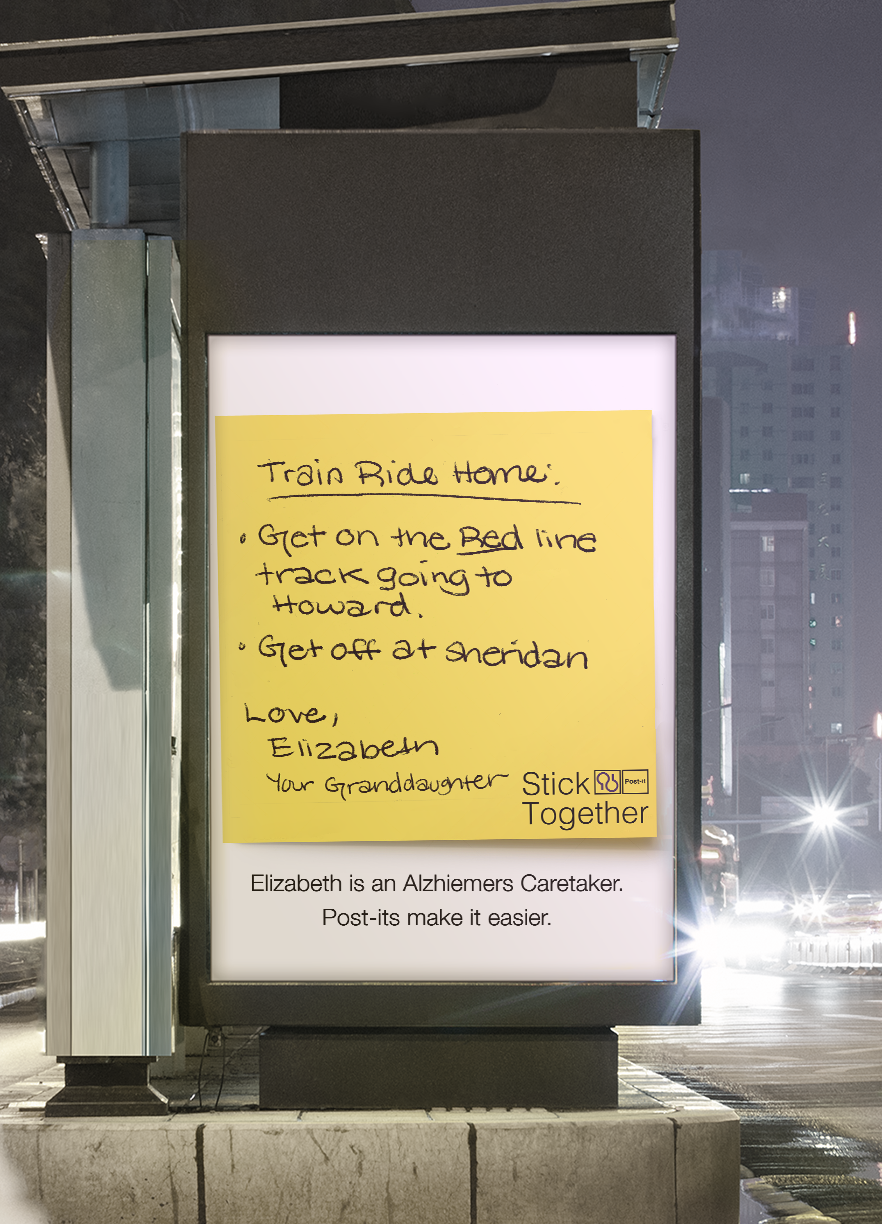 Train Ride Home:
• Get on the Red line
track going to
Howard.
• Get off at Sheridan
Love,
Elizabeth
Your Granddaughter
Stick Post-it
Together
Elizabeth is an Alzhiemers Caretaker.
Post-its make it easier.